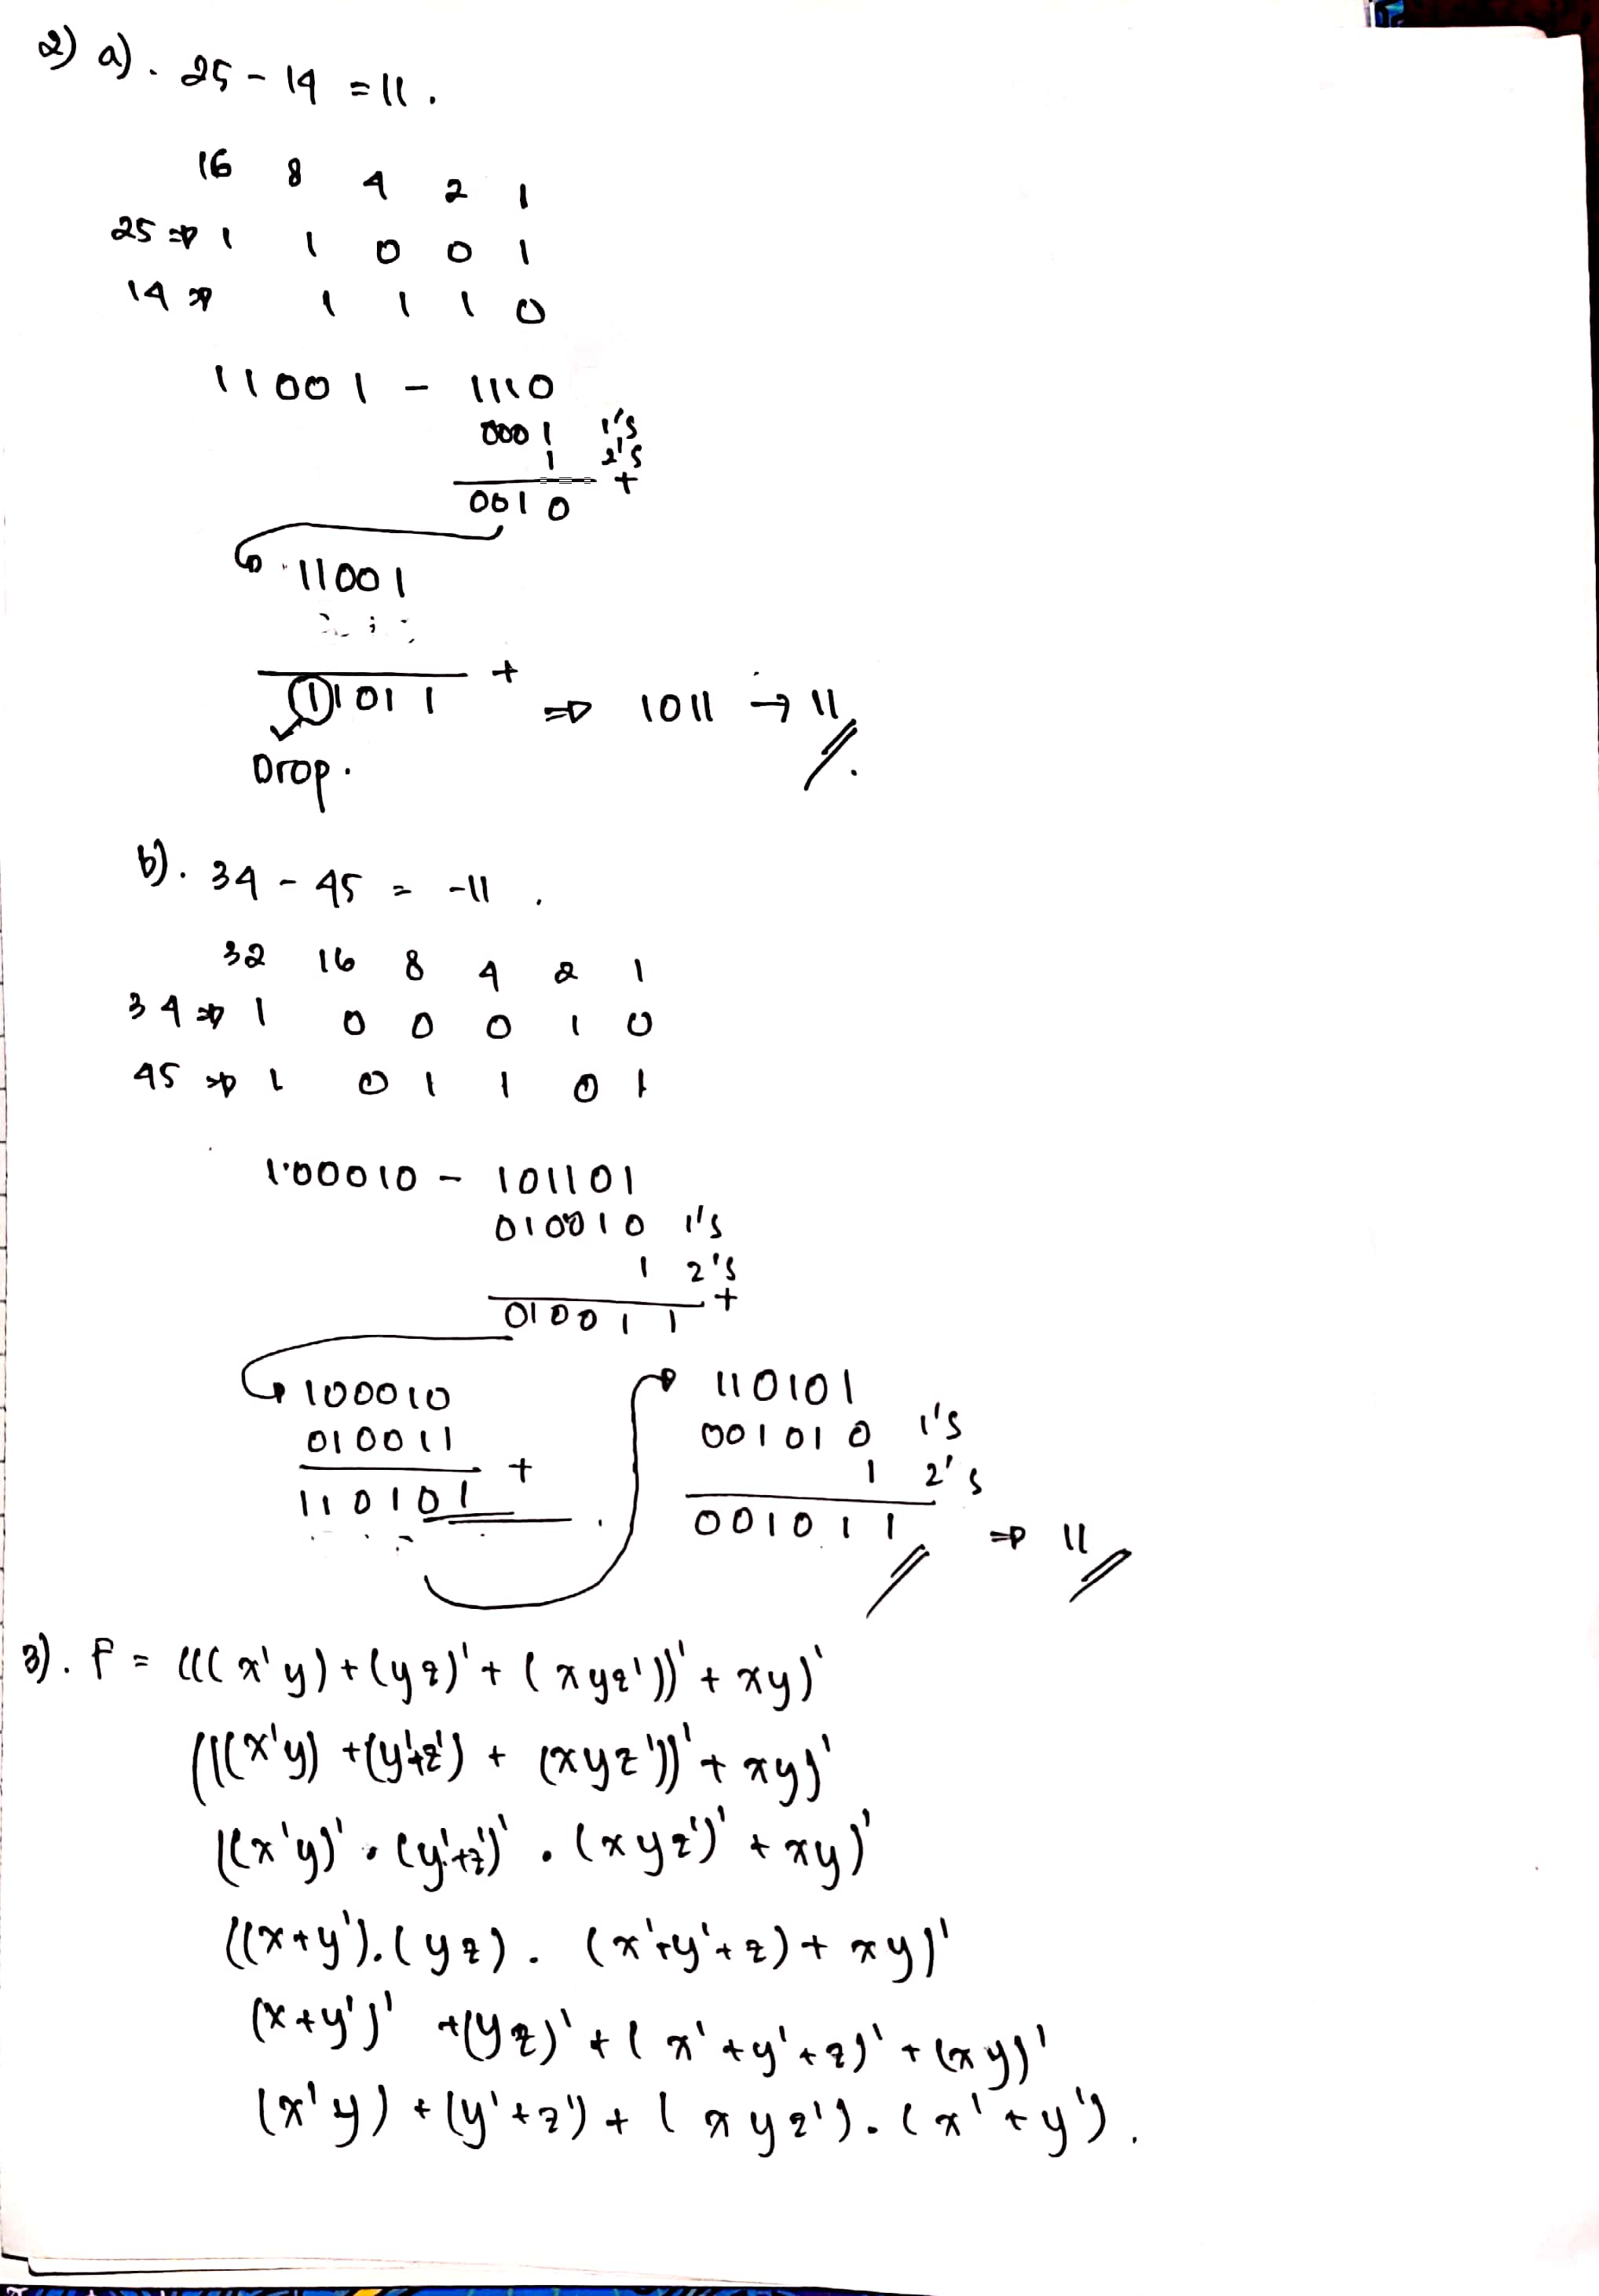 2) a). 25 - 14 = 11.
16 8 4 2 1
25 ⇒ 1 1 0 0 1
14 ⇒ 1 1 1 0
11001 - 1110
0001 1's
1 2's
+
0010
11001
+
11011 ⇒ 1011 → 11
Drop.
b). 34 - 45 = -11.
32 16 8 4 2 1
34 ⇒ 1 0 0 0 1 0
45 ⇒ 1 0 1 1 0 1
100010 - 101101
010010 1's
1 2's
+
010011
100010
010011
+
110101
110101
001010 1's
1 2's
001011 ⇒ 11
3). F = (((x'y)+(yz)'+(xyz'))'+xy)'
(((x'y)+(y'+z')+(xyz'))'+xy)'
((x'y)'.(y'+z')'.(xyz')'+xy)'
((x+y').(yz).(x'+y'+z)+xy)'
(x+y')'+(yz)'+(x'+y'+z)'+(xy)'
(x'y)+(y'+z')+(xyz').(x'+y').